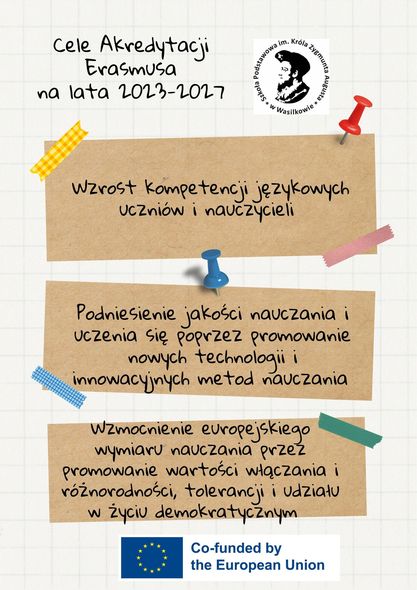 Cele Akredytacji
Erasmusa
na lata 2023-2027
Szkoła Podstawowa im. Króla Zygmunta Augusta
w Wasilkowie
Wzrost kompetencji językowych
uczniów i nauczycieli
Podniesienie jakości nauczania i
uczenia się poprzez promowanie
nowych technologii i
innowacyjnych metod nauczania
Wzmocnienie europejskiego
wymiaru nauczania przez
promowanie wartości włączania i
różnorodności, tolerancji i udziału
w życiu demokratycznym
Co-funded by
the European Union